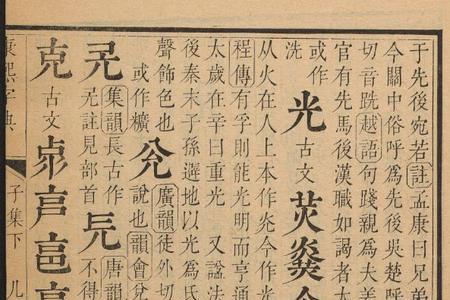 于先後宛若註孟康曰兄弟
今關中俗呼爲先後吳楚呼
切音跣越語句踐親爲夫差
官有先馬後漢職如謁者
或作
洗
光 古文 炗
从火在人上本作灮今作光
程傳有孚則能光明而亨通
太歲在辛曰重光 又諡法
後秦末子孫避地以光爲氏
聲飾色也
或作
兊 廣韻徒外切
說也韻會兌
集韻長古作
註見部首
唐韻
不得
克 古文
康熙字典 子集下 儿